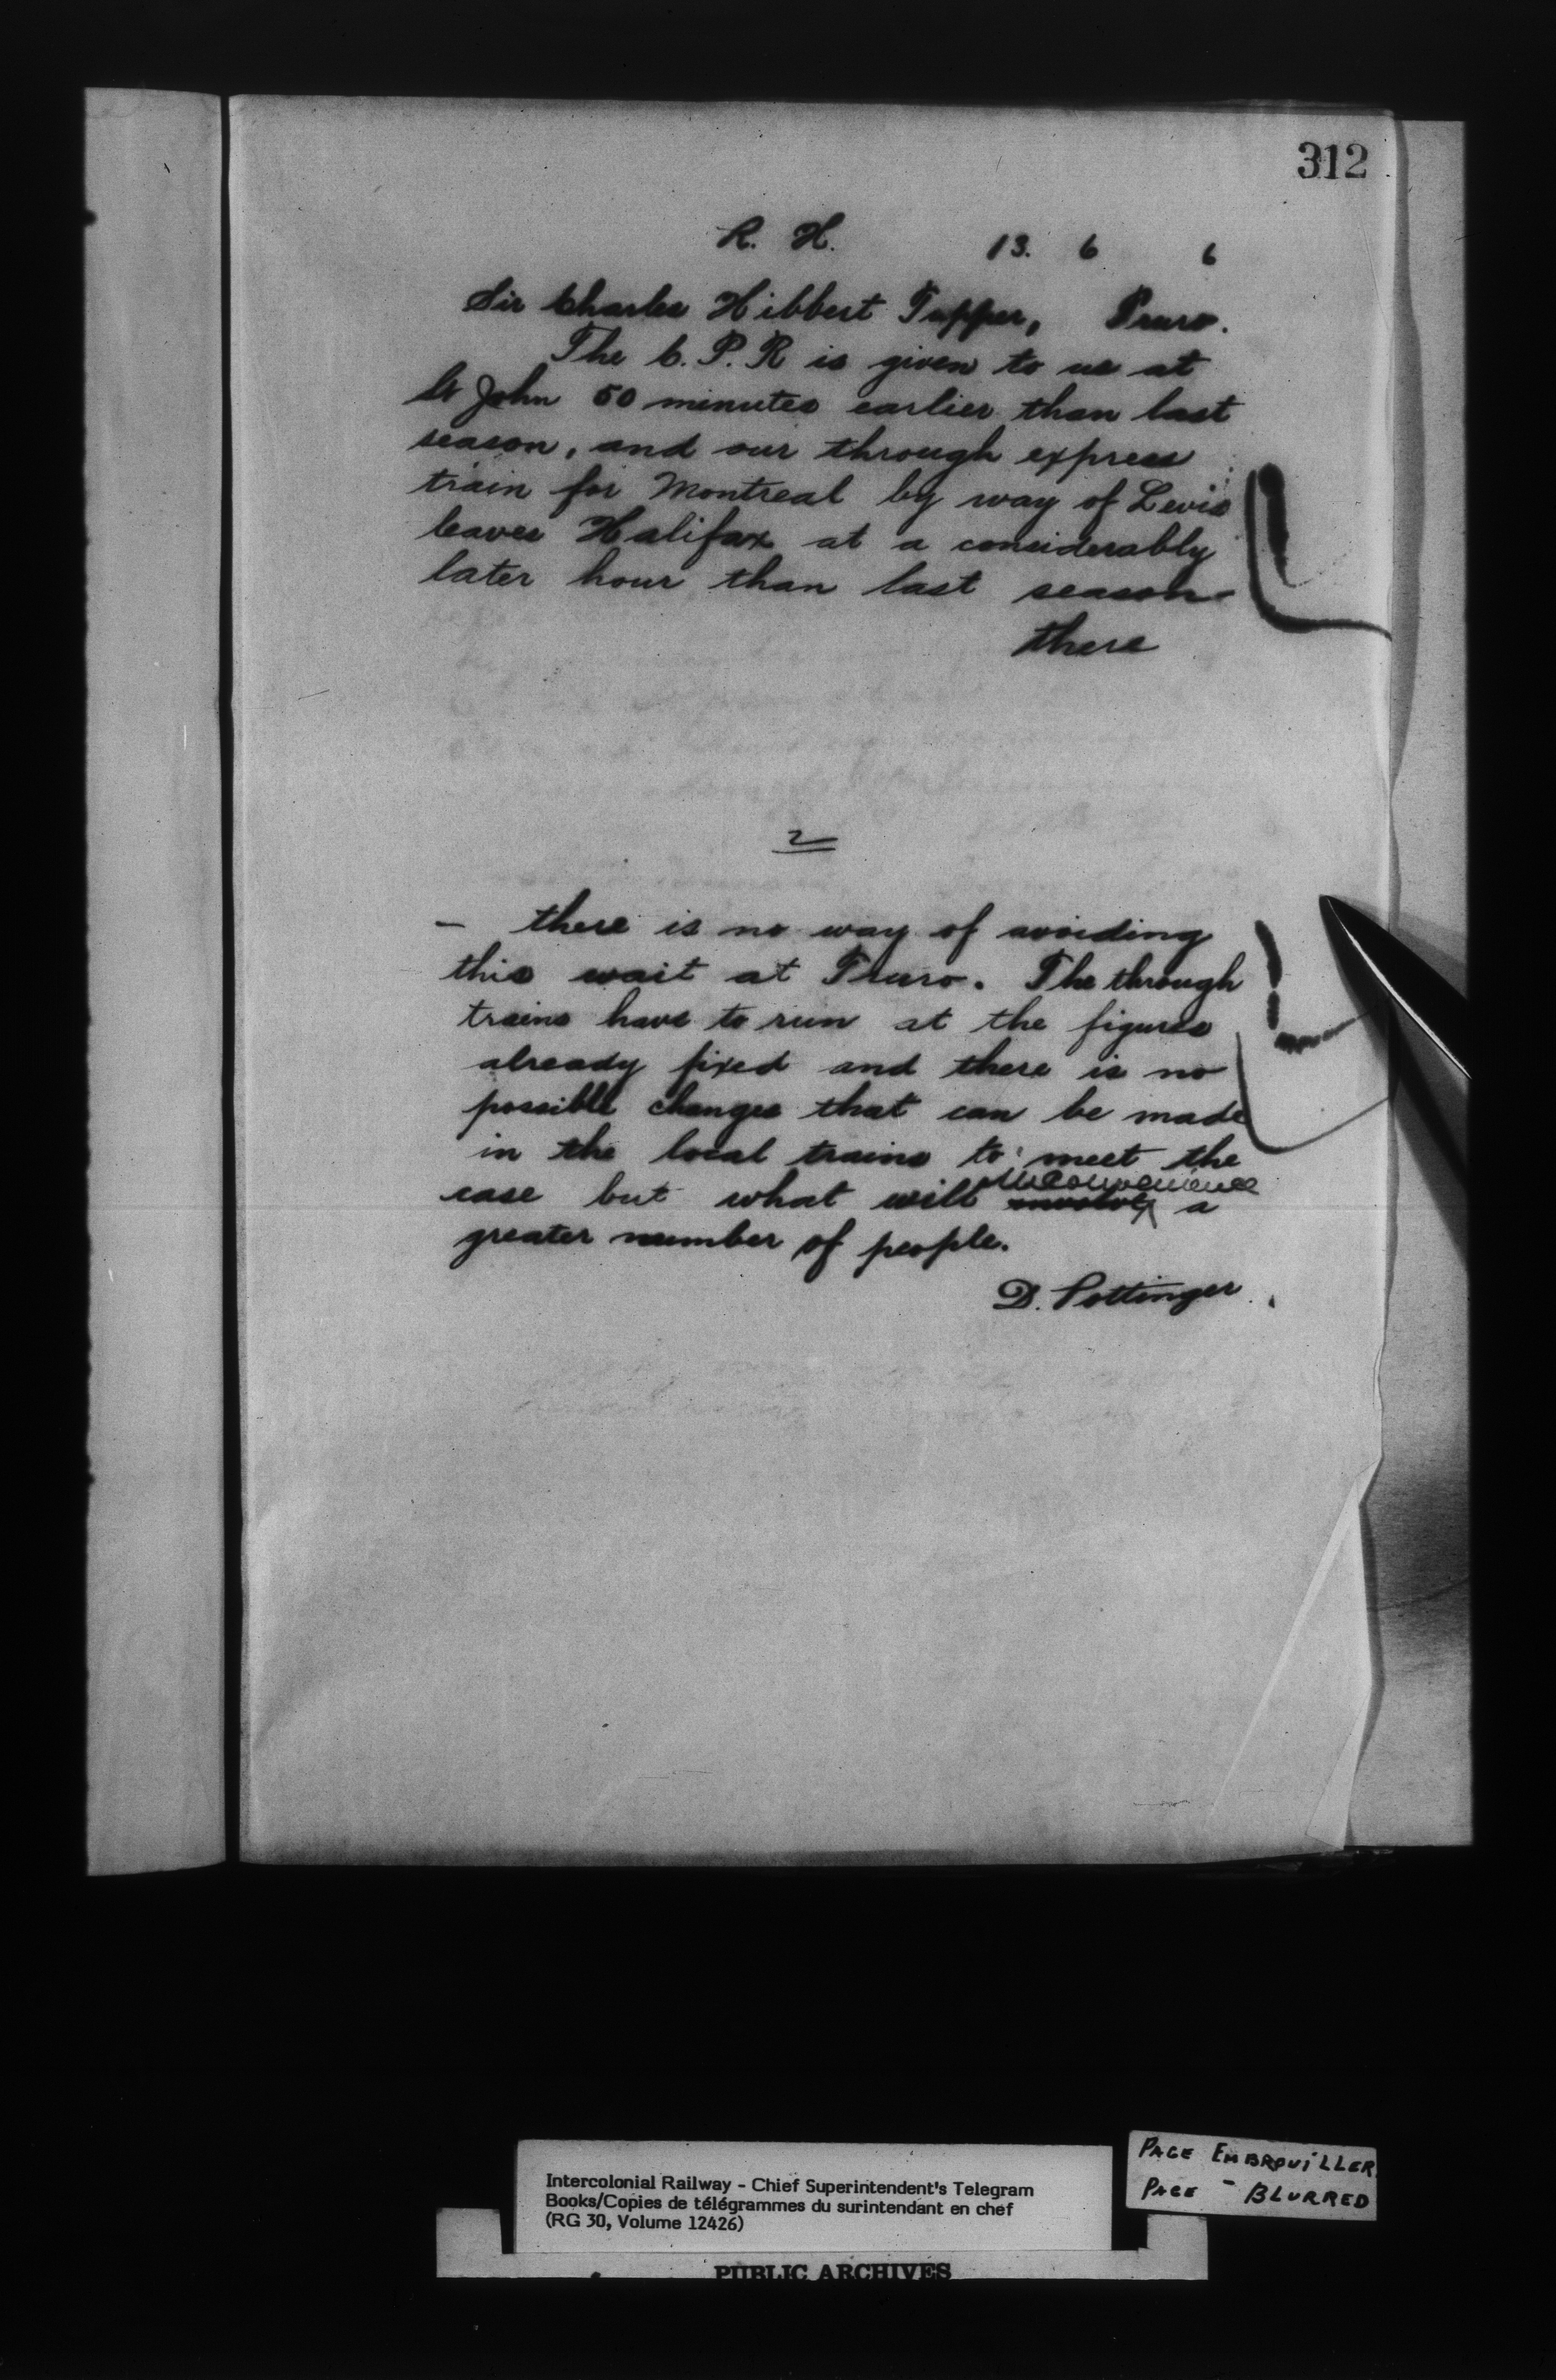 312
R. H. 13. 6 6
Sir Charles Hibbert Tupper, Truro.
The C. P. R is given to us at
St John 50 minutes earlier than last
season, and our through express
train for Montreal by way of Levis
leaves Halifax at a considerably
later hour than last season-
there
2
- there is no way of avoiding
this wait at Truro. The through
trains have to run at the figures
already fixed and there is no
possible changes that can be made
in the local trains to meet the
inconvenience
case but what will involve a
greater number of people.
D. Pottinger
Intercolonial Railway - Chief Superintendent's Telegram
Books/Copies de télégrammes du surintendant en chef
(RG 30, Volume 12426)
PUBLIC ARCHIVES
PAGE EMBROUILLER
PAGE - BLURRED